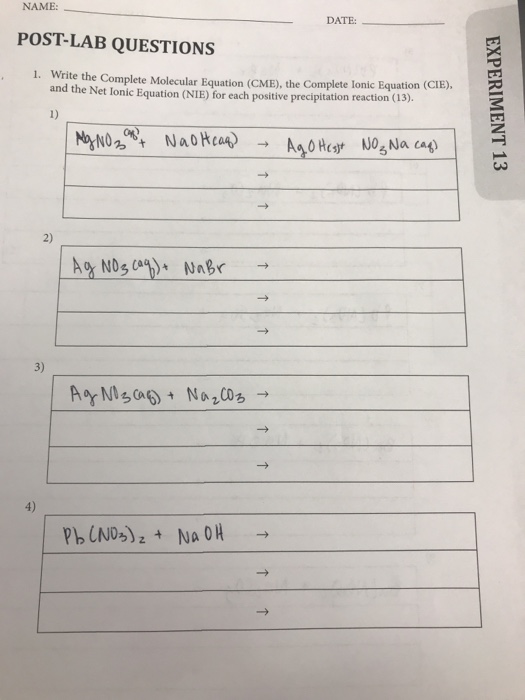 NAME:
DATE:
EXPERIMENT 13
POST-LAB QUESTIONS
1. Write the Complete Molecular Equation (CME), the Complete Ionic Equation (CIE),
and the Net Ionic Equation (NIE) for each positive precipitation reaction (13).
1)
AgNO3 (aq) + NaOH(aq) → AgOH(s)+ NO3Na (aq)
→
→
2)
AgNO3 (aq)+ NaBr →
→
→
3)
AgNO3(aq) + Na2CO3 →
→
→
4)
Pb(NO3)2 + NaOH →
→
→